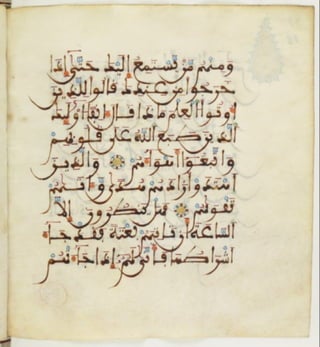 ومنهم من يستمع إليك حتى إذا
خرجوا من عندك قالوا للذين
أوتوا العلم ماذا قال ءانفا أولئك
الذين طبع الله على قلوبهم
واتبعوا أهواءهم والذين
اهتدوا زادهم هدى وءاتيهم
تقويهم فهل ينظرون إلا
الساعة أن تأتيهم بغتة فقد جاء
أشراطها فأنى لهم إذا جاءتهم